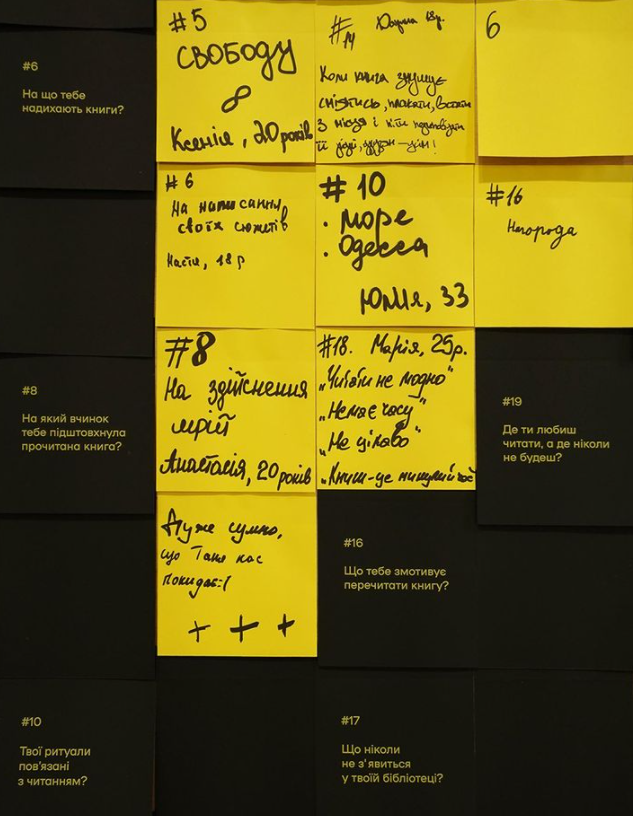 #6
На що тебе
надихають книги?
#5
СВОБОДУ
Ксенія, 20 років
#14 18р.
Коли книга змушує
сміятись, плакати, встати
з місця і
її
6
#6
На написання
своїх сюжетів
Настя, 18 р
#10
· море
· Одесса
Юлія, 33
#16
#8
На який вчинок
тебе підштовхнула
прочитана книга?
#8
На здійснення
мрій
Анастасія, 20 років
#18. Марія, 25р.
„Читати не модно"
„Немає часу"
„Не цікаво"
„Книги-це
#19
Де ти любиш
читати, а де ніколи
не будеш?
Дуже сумно,
що Таня нас
покидає:(
+ + +
#16
Що тебе змотивує
перечитати книгу?
#10
Твої ритуали
пов'язані
з читанням?
#17
Що ніколи
не з'явиться
у твоїй бібліотеці?